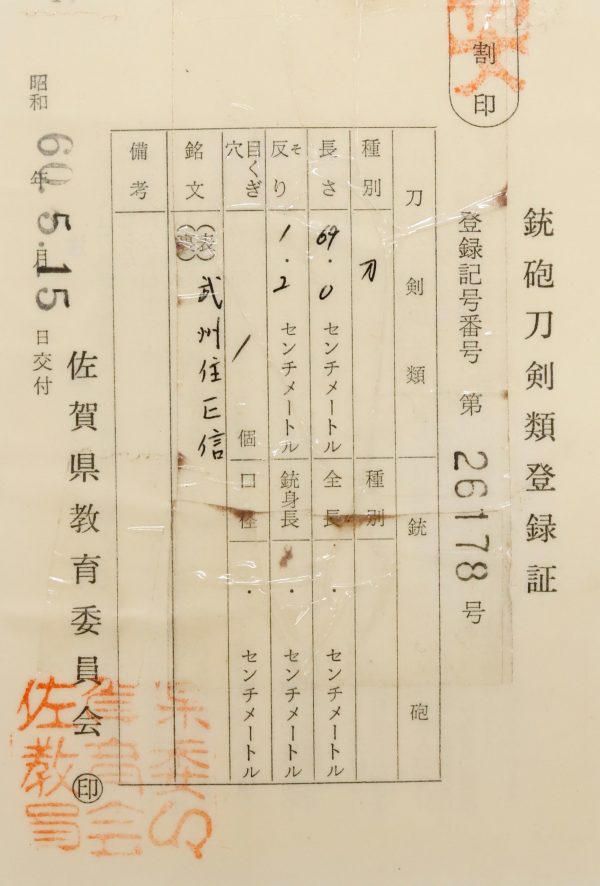 割印
銃砲刀剣類登録証
登録記号番号 第 26178 号
刀剣類
銃砲
種別 刀
長さ 69.0 センチメートル
反り そ 1.2 センチメートル
目くぎ穴 1 個
銘文 表 裏 武州住正信
備考
種別
全長 ・ センチメートル
銃身長 ・ センチメートル
口径 ・ センチメートル
昭和 60年 5.月 15 日交付
佐賀県教育委員会 印